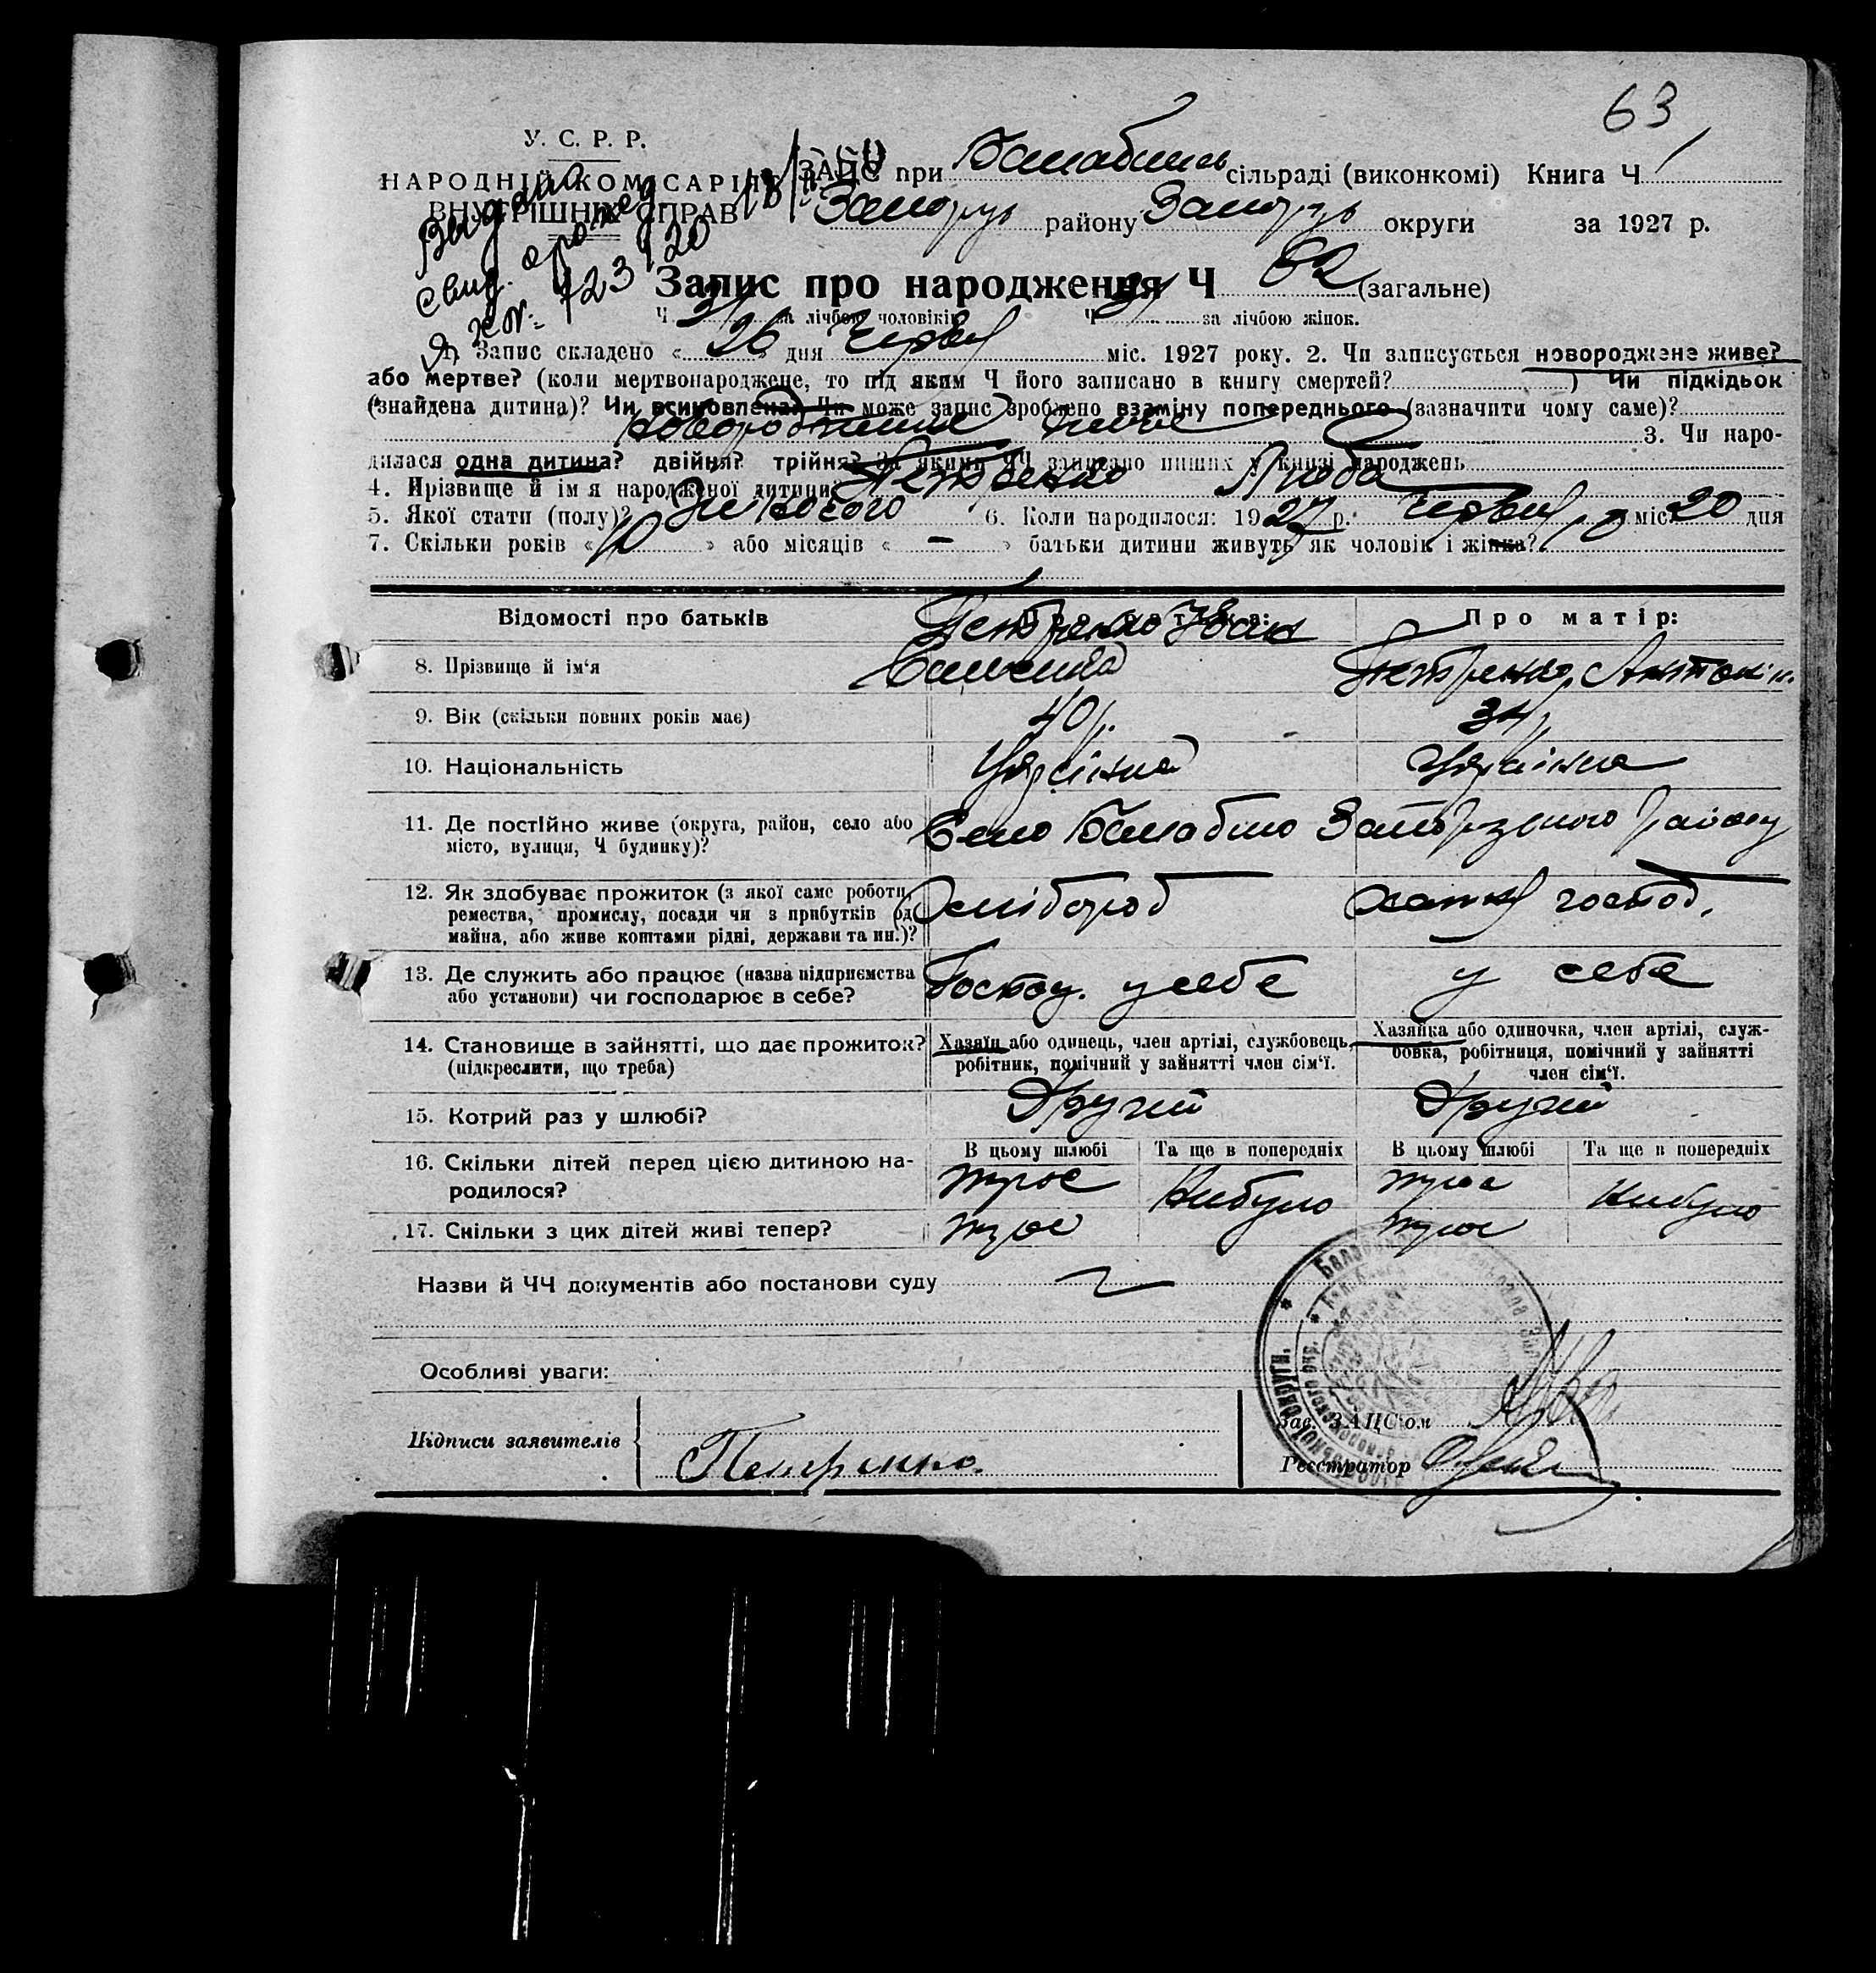 63
У. С. Р. Р.
НАРОДНІЙ КОМІСАРІЯТ
ВНУТРІШНІХ СПРАВ
ЗАЦС при сільраді (виконкомі) Книга Ч 1
району округи за 1927 р.
Видано
свид. о рожд.
Запис про народження Ч 62 (загальне)
Ч за лічбою чоловіків Ч за лічбою жінок.
1. Запис складено « 26 » дня міс. 1927 року. 2. Чи записується новороджене живе?
або мертве? (коли мертвонароджене, то під яким Ч його записано в книгу смертей? ) Чи підкідьок
(знайдена дитина)? Чи всиновлена? Чи може запис зроблено взаміну попереднього (зазначити чому саме)?
живе 3. Чи наро-
дилася одна дитина? двійня? трійня? За якими ЧЧ записано инших у книзі народжень
4. Прізвище й ім'я народженої дитини? Петренко Люба
5. Якої стати (полу)? Жіночого 6. Коли народилося: 1927 р. міс. 20 дня
7. Скільки років « 10 » або місяців « — » батьки дитини живуть як чоловік і жінка?
Відомості про батьків Про матір:
Петренко Іван
8. Прізвище й ім'я Петренко Антонін.
9. Вік (скільки повних років має) 40 р. 34 р.
10. Національність
11. Де постійно живе (округа, район, село або
місто, вулиця, Ч будинку)? Село Балабино Запорізького району
12. Як здобуває прожиток (з якої саме роботи,
ремества, промислу, посади чи з прибутків од
майна, або живе коштами рідні, держави та ин.)? Хлібороб хатнє господ.
13. Де служить або працює (назва підприємства
або установи) чи господарює в себе? Господ. у себе у себе
14. Становище в зайнятті, що дає прожиток?
(підкреслити, що треба)
Хазяїн або одинець, член артілі, службовець,
робітник, помічний у зайнятті член сім'ї.
Хазяйка або одиночка, член артілі, служ-
бовка, робітниця, помічний у зайнятті
член сім'ї.
15. Котрий раз у шлюбі? Другий Другий
В цьому шлюбі Та ще в попередніх В цьому шлюбі Та ще в попередніх
16. Скільки дітей перед цією дитиною на-
родилося? троє Небуло троє Небуло
17. Скільки з цих дітей живі тепер? троє троє
Назви й ЧЧ документів або постанови суду
Особливі уваги:
Підписи заявителів Петренко.
Зав. ЗАЦС'ом
Реєстратор